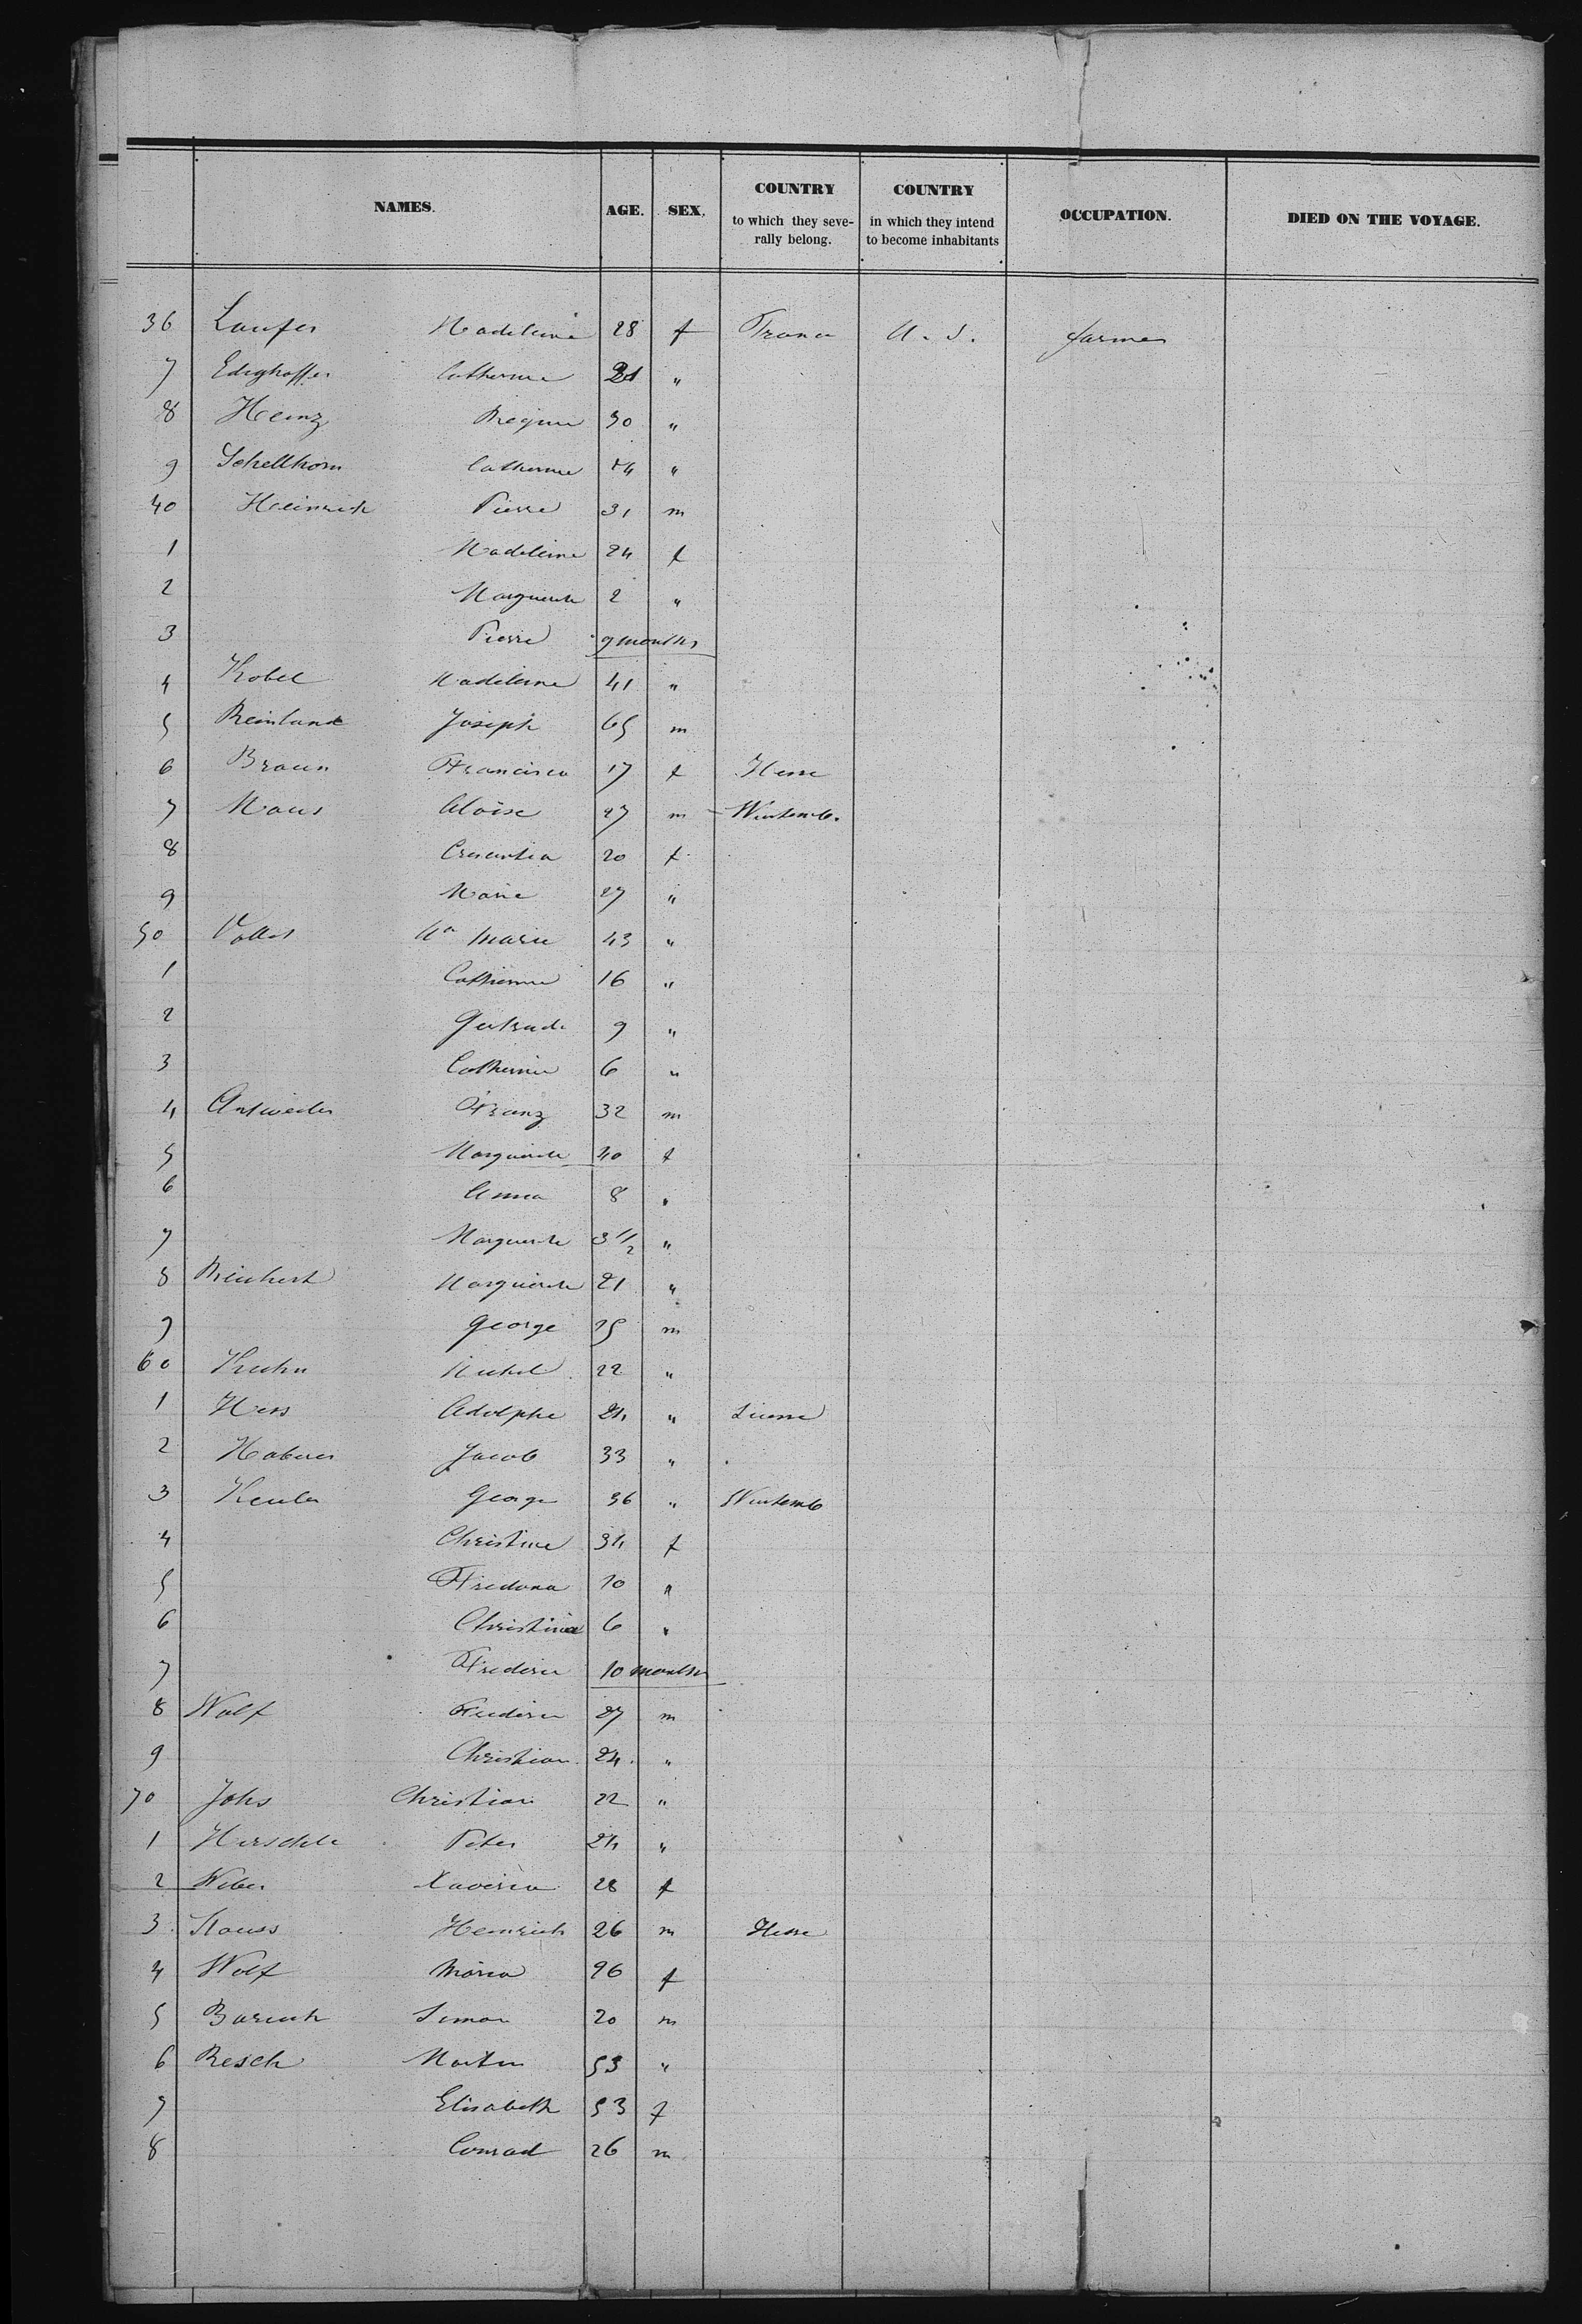 NAMES. AGE. SEX. COUNTRY to which they severally belong. COUNTRY in which they intend to become inhabitants OCCUPATION. DIED ON THE VOYAGE.
36 Laufer Madeleine 28 f France U. S. farmer
7 Edighoffer Catherine 21 "
8 Heinz Regine 30 "
9 Schellhorn Catherine "
40 Heinrich Pierre 31 m
1 Madeleine 24 f
2 Marguerite 2 "
3 Pierre 9 months
4 Kobel Madeleine 41 "
5 Joseph 65 m
6 Braun Francisca 17 f Hesse
7 Maus Aloise 27 m Wurtemb.
8 Crescentia 20 f
9 Marie 27 "
50 Aa Marie 43 "
1 Catherine 16 "
2 Gertrude 9 "
3 Catherine 6 "
4 Antweiler Franz 32 m
5 Marguerite 40 f
6 Anna 8 "
7 Marguerite 3 1/2 "
8 Marguerite 21 "
9 George 25 m
60 Kuhn Michel 22 "
1 Hess Adolphe 24 "
2 Haberer Jacob 33 "
3 George 36 " Wurtemb
4 Christine 34 f
5 10 "
6 Christina 6 "
7 10 months
8 Wolf 27 m
9 Christian 24 "
70 Johs Christian 22 "
1 Peter 24 "
2 Weber Xaveria 28 f
3 Heinrich 26 m Hesse
4 Wolf Maria 26 f
5 Simon 20 m
6 Resch Martin 53 "
7 Elisabeth 53 f
8 Conrad 26 m